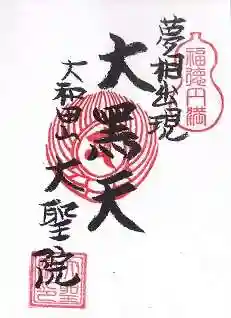 福徳円満
夢相出現
大黑天
大和田山
大聖院